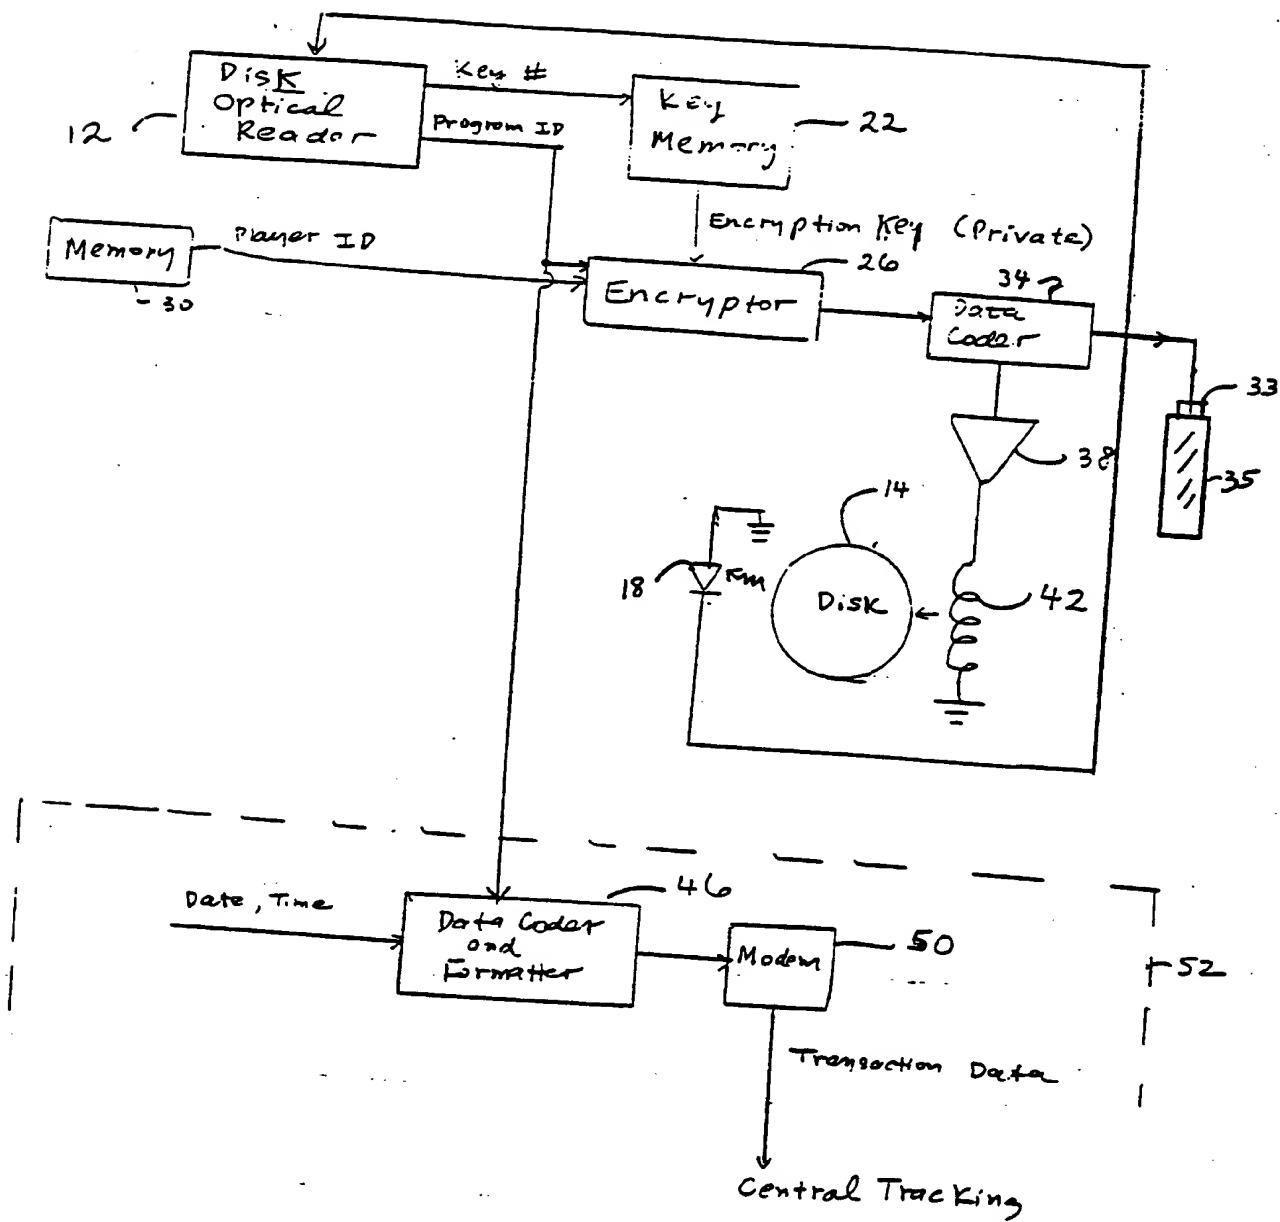 Disk
Optical
Reader
12
Key #
Program ID
Key
Memory
22
Memory
30
Player ID
Encryption Key (Private)
26
Encryptor
34
Data
Coder
33
35
38
14
18
Disk
42
Date, Time
46
Data Coder
and
Formatter
Modem
50
52
Transaction Data
Central Tracking